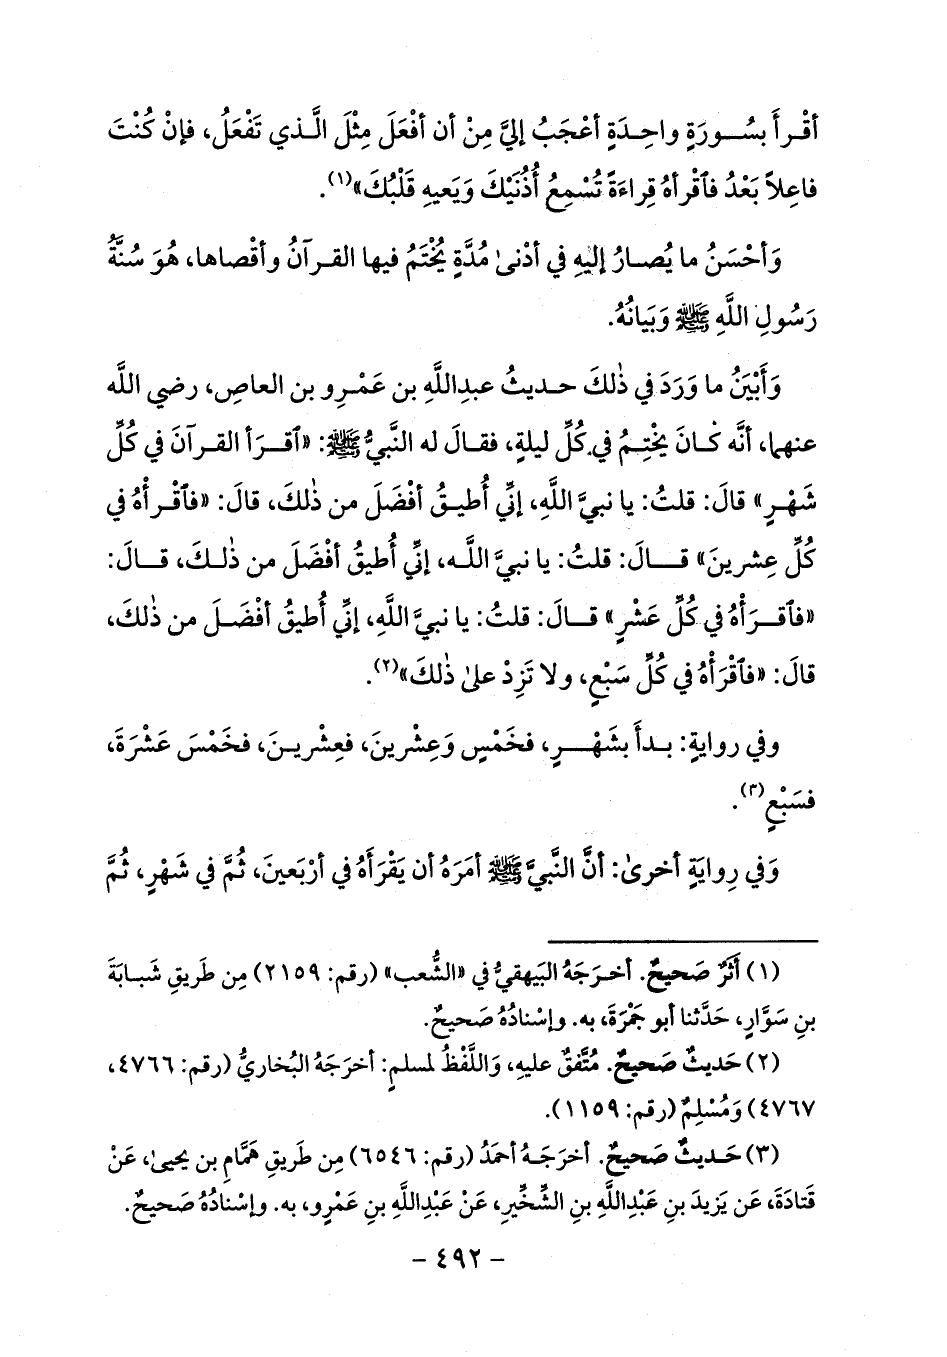 أقْرأَ بسُورَةٍ واحِدَةٍ أعْجَبُ إليَّ مِنْ أن أفْعَلَ مِثْلَ الَّذي تَفْعَلُ، فإنْ كُنْتَ
فاعِلاً بَعْدُ فٱقْرأهُ قِراءَةً تُسْمِعُ أُذُنَيْكَ وَيَعيهِ قَلْبُكَ»(١).
وَأحْسَنُ ما يُصارُ إليْهِ في أدْنىٰ مُدَّةٍ يُخْتَمُ فيها القرآنُ وأقْصاها، هُوَ سُنَّةُ
رَسُولِ اللَّهِ ﷺ وَبَيانُهُ.
وَأبْيَنُ ما وَرَدَ في ذٰلكَ حديثُ عبدِاللَّهِ بن عَمْرِو بن العاصِ، رضي الله
عنهما، أنَّه كْانَ يخْتِمُ في كُلِّ ليلةٍ، فقالَ له النَّبيُّ ﷺ: «ٱقرَأ القرآنَ في كُلِّ
شَهْرٍ» قالَ: قلتُ: يا نبيَّ اللَّهِ، إنّي أُطيقُ أفْضَلَ من ذٰلكَ، قالَ: «فٱقْرأْهُ في
كُلِّ عِشرينَ» قالَ: قلتُ: يا نبيَّ اللَّه، إنّي أُطيقُ أفْضَلَ من ذٰلكَ، قالَ:
«فٱقرَأْهُ في كُلِّ عَشْرٍ» قالَ: قلتُ: يا نبيَّ اللَّهِ، إنّي أُطيقُ أفْضَلَ من ذٰلكَ،
قالَ: «فٱقْرَأْهُ في كُلِّ سَبْعٍ، ولا تَزِدْ علىٰ ذٰلكَ»(٢).
وفي روايةٍ: بدأَ بشَهْرٍ، فخَمْسٍ وَعِشْرينَ، فعِشْرينَ، فخَمْسَ عَشْرَةَ،
فسَبْعٍ(٣).
وَفي رِوايَةٍ أخرىٰ: أنَّ النَّبيَّ ﷺ أمَرَهُ أن يَقْرَأَهُ في أرْبَعينَ، ثُمَّ في شَهْرٍ، ثُمَّ
(١) أثَرٌ صَحيحٌ. أخرَجَهُ البَيهقيُّ في «الشُّعب» (رقم: ٢١٥٩) مِن طَريقِ شَبابَةَ
بنِ سَوَّارٍ، حَدَّثنا أبو جَمْرَةَ، به. وإسْنادُهُ صَحيحٌ.
(٢) حَديثٌ صَحيحٌ. مُتَّفقٌ عليهِ، وَاللَّفْظُ لمسلمٍ: أخرَجَهُ البُخاريُّ (رقم: ٤٧٦٦،
٤٧٦٧) وَمُسْلِمٌ (رقم: ١١٥٩).
(٣) حَديثٌ صَحيحٌ. أخرَجَهُ أحمَدُ (رقم: ٦٥٤٦) مِن طَريقِ هَمَّامِ بن يحيىٰ، عَنْ
قَتادَةَ، عَن يَزيدَ بنِ عَبْدِاللَّهِ بنِ الشِّخِّيرِ، عَنْ عَبْدِاللَّهِ بنِ عَمْرٍو، به. وإسْنادُهُ صَحيحٌ.
- ٤٩٢ -